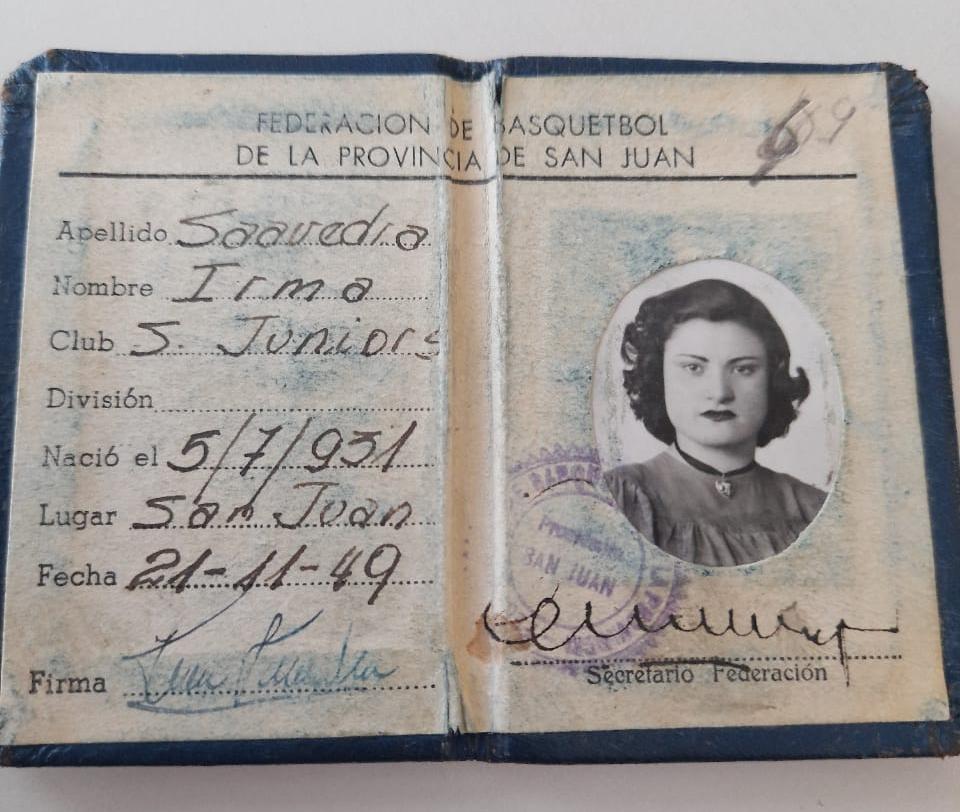 FEDERACION DE BASQUETBOL
DE LA PROVINCIA DE SAN JUAN
Apellido Saavedra
Nombre Irma
Club S. Juniors
División
Nació el 5/7/931
Lugar San Juan
Fecha 21-11-49
Firma
SAN JUAN
Secretario Federación